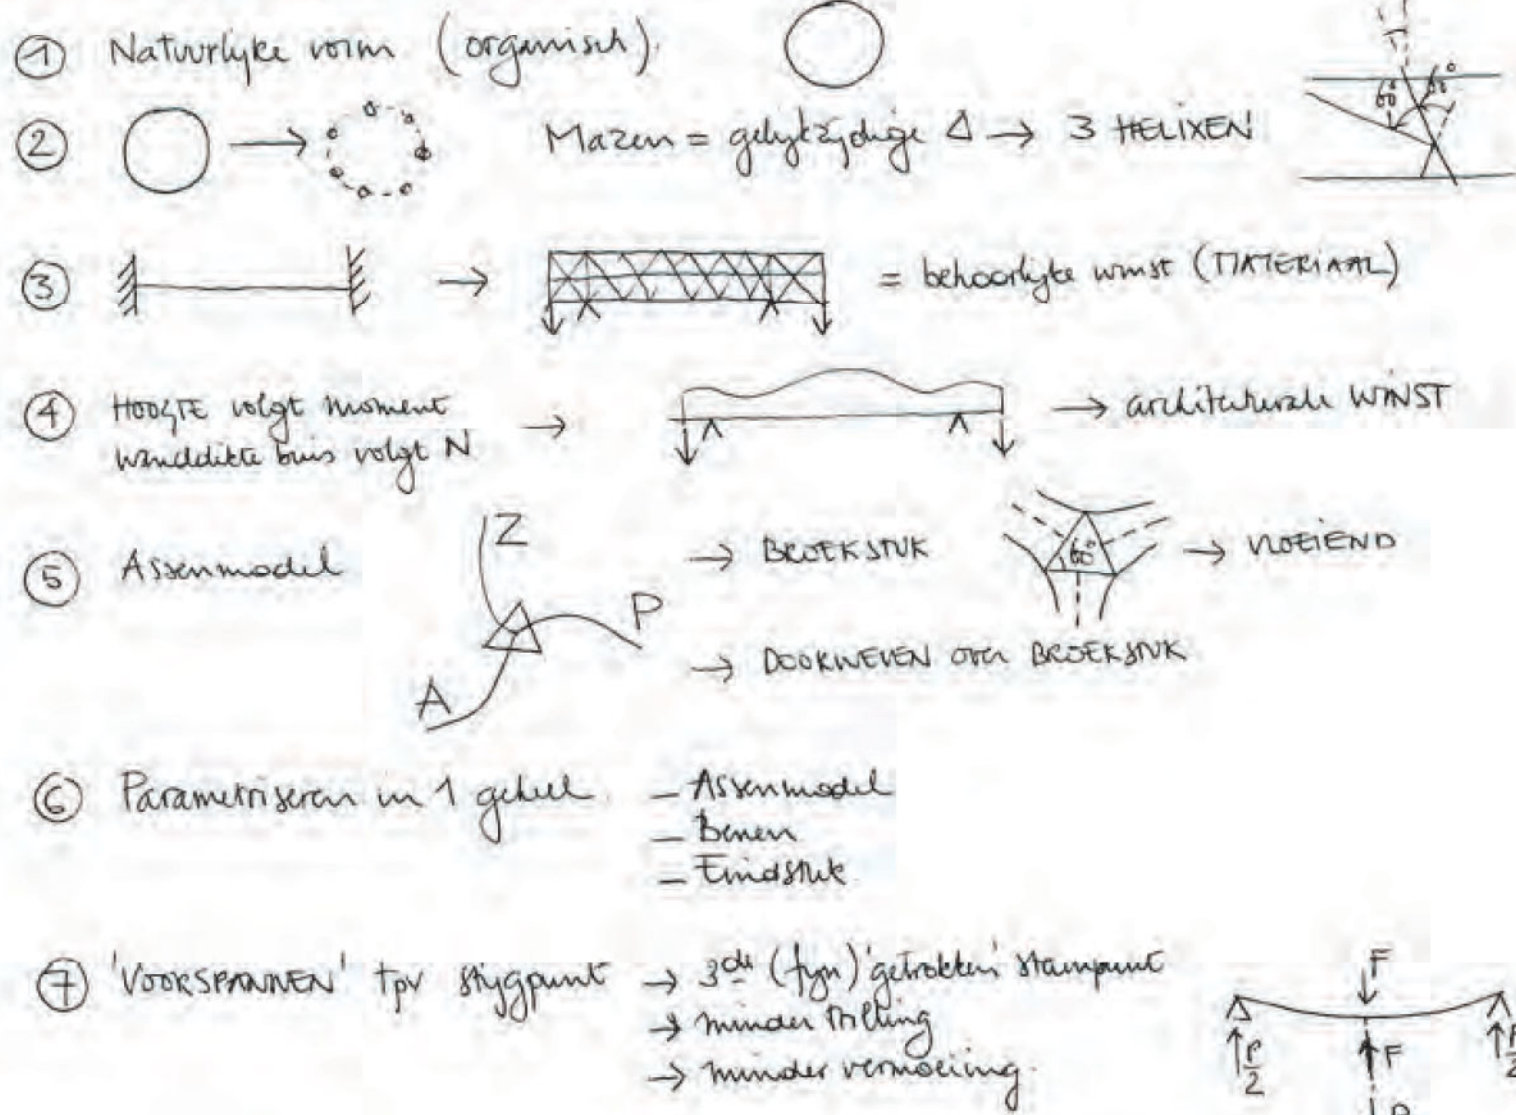 ① Natuurlyke vorm (organisch).
② Mazen = gelykzydige Δ → 3 HELIXEN
60° 60°
③ → = behoorlyke winst (MATERIAAL)
④ HOOGTE volgt moment
wanddikte buis volgt N → → architecturale WINST
⑤ Assenmodel
Z
P
A
→ BROEKSTUK
60°
→ VLOEIEND
→ DOORWEVEN over BROEKSTUK
⑥ Parametriseren in 1 geheel
– Assenmodel
– Benen
– Eindstuk
⑦ 'VOORSPANNEN' tpv stygpunt → 3de (fyn) 'getrokken' steunpunt
→ minder trilling
→ minder vermoeiing.
F
F
P/2